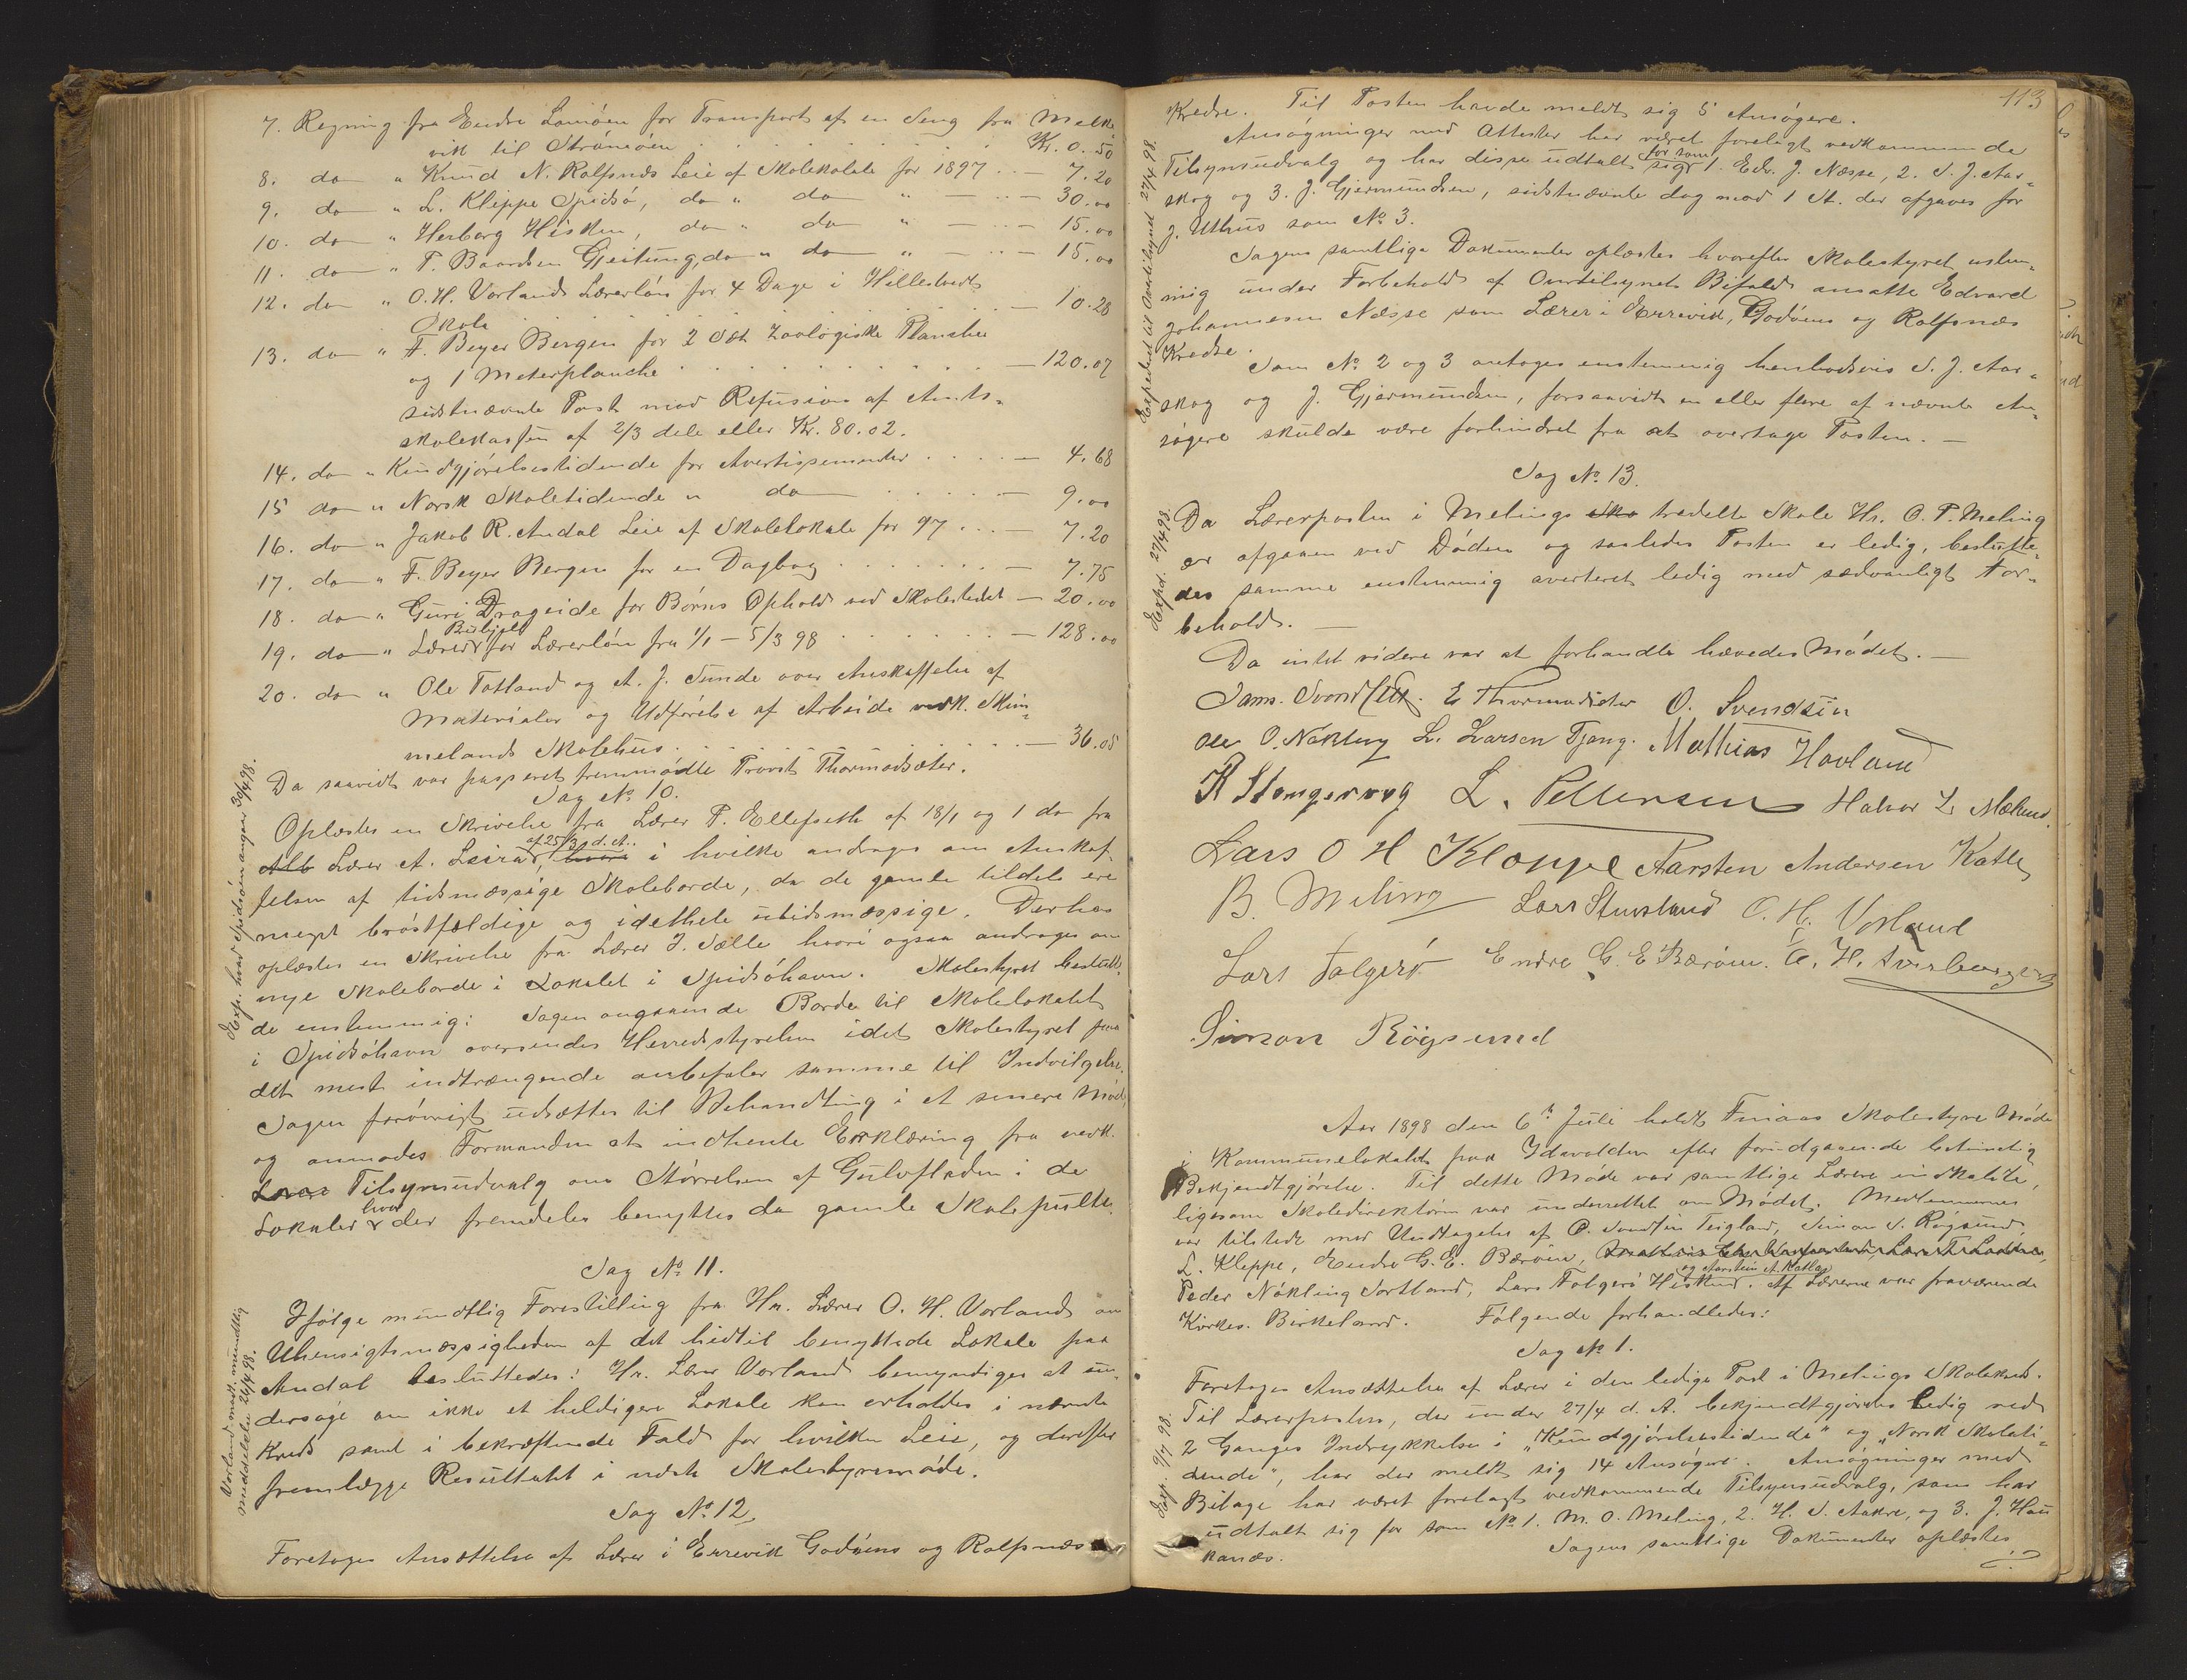 7. Regning fra Endre Lamøen for Transport af en Seng fra Melke-
vik til Strømøen . . . . . . . . Kr. 0.50
8. do " Knud N. Rolfsnes Leie af Skolelokale for 1897 . . — 7.20
9. do " L. Kleppe Spidsø, do " do " — . . — 30.00
10. do " Herborg Hisken, do " do " — . . — 15.00
11. do " T. Baardsen Gjeitung, do " do " — . . — 15.00
12. do " O. H. Vorlands Lærerløn for 4 Dage i Hillestveits
Skole . . . . . . . . — 10.28
13. do " F. Beyer Bergen for 2 Sæt Zoologiske Plancher
og 1 Meterplanche . . . . . . . — 120.07
sidstnævnte Post mod Refusion af Amts-
skolekassen af 2/3 dele eller Kr. 80.02.
14. do " Kundgjørelsestidende for Avertissementer . . . . — 4.68
15 do " Norsk Skoletidende " do . . . . . — 9.00
16. do " Jakob R. Andal Leie af Skolelokale for 97 . . . — 7.20
17. do " F. Beyer Bergen for en Dagbog . . . . . . . — 7.75
18. do " Guri Drageide for Børns Ophold ved Skolestedet — 20.00
19. do " Lærer Buhjell for Lærerløn fra 1/1 – 5/3 98 . . . . . . — 128.00
20. do " Ole Totland og A. J. Sunde over Anskaffelse af
Materialer og Udførelse af Arbeide vedk. Skim-
melands Skolehus . . . . . . . . . . — 36.05
Da saavidt var passeret fremmødte Provst Thormodsæter.
Sag No. 10.
Oplæstes en Skrivelse fra Lærer P. Ellefseth af 18/1 og 1 do fra
Lærer A. Leira af 25/3 d. A. i hvilke andrages om Anskaf-
felsen af tidsmæssige Skoleborde, da de gamle tildels ere
meget brøstfældige og idethele utidsmæssige. Derhos
oplæstes en Skrivelse fra Lærer J. Sælle hvori ogsaa andrages om
nye Skoleborde i Lokalet i Spidsøhavn. Skolestyret beslutte-
de enstemmig: Sagen angaaende Borde til Skolelokalet
i Spidsøhavn oversendes Herredsstyrelsen idet Skolestyret paa
det mest indtrængende anbefaler samme til Indvilgelse.
Sagen forøvrigt udsættes til Behandling i et senere Møde,
og anmodes Formanden at indhente Erklæring fra vedk.
Tilsynsudvalg om Størrelsen af Gulvfladen i de
Lokaler hvor der fremdeles benyttes da gamle Skolepulte.
Exp. hvad Spidsøen angaar 30/4 98.
Sag No. 11.
Ifølge mundtlig Forestilling fra Hr. Lærer O. H. Vorland om
Uhensigtsmæssigheden af det hidtil benyttede Lokale paa
Andal besluttedes: Hr. Lærer Vorland bemyndiges at un-
dersøge om ikke et heldigere Lokale kan erholdes i nævnte
Kreds samt i bekræftende Fald for hvilken Leie, og derefter
fremlægge Resultatet i næste Skolestyremøde.
Vorland medt. mundtlig
meddelelse 26/4 98.
Sag No. 12.
Foretoges Ansættelse af Lærer i Errevik Godøens og Rolfsnæs
113
Kredse. Til Posten havde meldt sig 5 Ansøgere.
Ansøgninger med Attester har været forelagt vedkommende
Tilsynsudvalg og har disse udtalt sig for som 1. Edv. J. Næsse, 2. S. J. Aar-
skog og 3. J. Gjermundsen, sidstnævnte dog mod 1 St. der afgaves for
J. Uthus som No. 3.
Sagens samtlige Dokumenter oplæstes hvorefter Skolestyret enstem-
mig under Forbehold af Overtilsynets Bifald ansatte Edvard
Johannesen Næsse som Lærer i Errevik, Godøens og Rolfsnæs
Kredse.
Som No. 2 og 3 antoges enstemmig henholdsvis S. J. Aar-
skog og J. Gjermundsen, forsaavidt en eller flere af nævnte An-
søgere skulde være forhindret fra at overtage Posten. —
Exspedert til Overtilsynet 27/4 98.
Sag No. 13.
Da Lærerposten i Melings tredelte Skole Hr. O. P. Meling
er afgaaen ved Døden og saaledes Posten er ledig, beslutte-
des samme enstemmig averteret ledig med sædvanligt For-
behold. —
Exped. 27/4 98.
Da intet videre var at forhandle hævedes Mødet. —
E Thormodsæter O. Svendsen
Ole O. Nökling L. Larsen Tjong. Mathias Hovland
R Stangervag L. Pettersen Halvor L Mæland.
Lars O H Kloppe Aarsten Andersen Katle
B. Meling Lars Stuvland O. H. Vorland
Lars Folgerö Endre G. E Bærøen.
Simon Rögsund
Aar 1898 den 6te Juli holdt Finaas Skolestyre Møde
i Kommunelokalet paa Idavolden efter forudgaaende betimelig
Bekjendtgjørelse. Til dette Møde var samtlige Lærere indkaldte,
ligesom Skoledirektøren var underrettet om Mødet. Medlemmerne
var tilstede med Undtagelse af O. Svendsen Teigland, Simon S. Røgsund,
L. Kleppe, Endre G. E. Bærøen,
Peder Nökling Sortland, Lars Folgerø Hisken og Aarstein A. Katla. Af Lærerne var fraværende
Kirkes. Birkeland. Følgende forhandledes:
Sag No 1.
Foretoges Ansættelse af Lærer i den ledige Post i Melings Skolekreds.
Til Lærerposten, der under 27/4 d. A. bekjendtgjordes ledig ved
2 Ganges Indrykkelse i „Kundgjørelsestidende" og „Norsk Skoleti-
dende", har der meldt sig 14 Ansøgere. Ansøgninger med
Bilage har været forelagt vedkommende Tilsynsudvalg, som har
udtalt sig for som No 1. M. O. Meling, 2. H. S. Aakre, og 3. J. Hau
kanæs. Sagens samtlige Dokumenter oplæstes
Exp. 9/7 98.